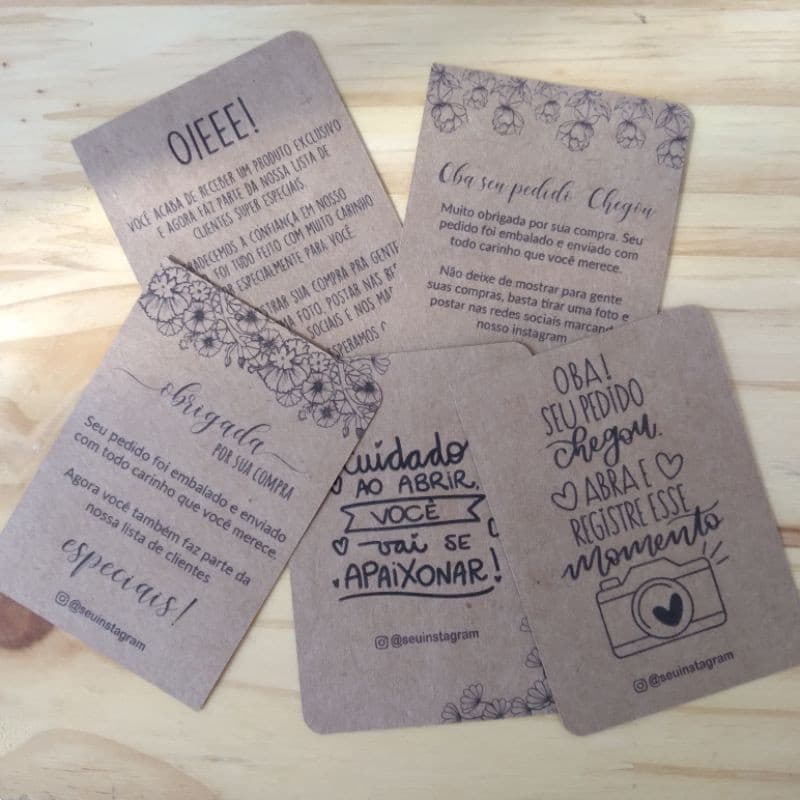 OIEEE!
VOCÊ ACABA DE RECEBER UM PRODUTO EXCLUSIVO
E AGORA FAZ PARTE DA NOSSA LISTA DE
CLIENTES SUPER ESPECIAIS
CONFIANÇA EM NOSSO
FOI TUDO FEITO COM MUITO CARINHO
ESPECIALMENTE PARA VOCÊ.
SUA COMPRA PRA GENTE
FOTO, POSTAR NAS
SOCIAIS E NOS
Oba seu pedido Chegou
Muito obrigada por sua compra. Seu
pedido foi embalado e enviado com
todo carinho que você merece.
Não deixe de mostrar para gente
suas compras, basta tirar uma foto e
postar nas redes sociais
nosso instagram
obrigada
POR SUA COMPRA
Seu pedido foi embalado e enviado
com todo carinho que você merece.
Agora você também faz parte da
nossa lista de clientes
especiais!
@seuinstagram
Cuidado
AO ABRIR,
VOCÊ
vai SE
APAIXONAR!
@seuinstagram
OBA!
SEU PEDIDO
chegou,
ABRA E
REGISTRE ESSE
momento
@seuinstagram